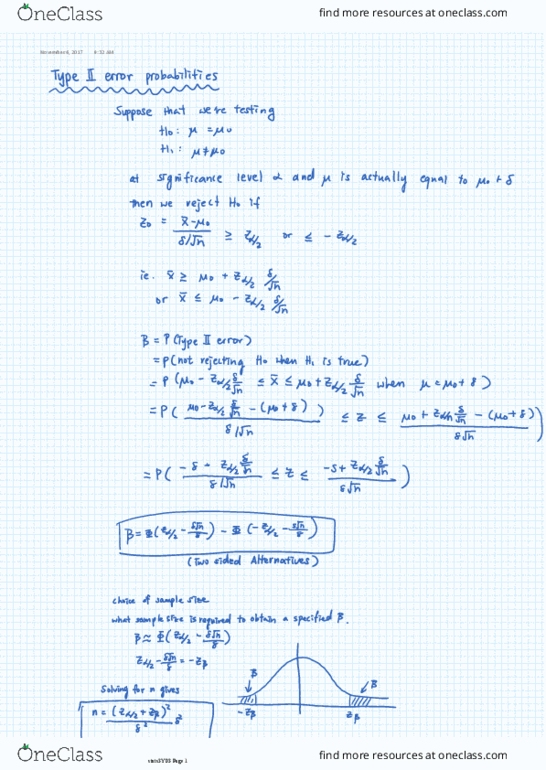 OneClass
find more resources at oneclass.com
November 6, 2017 8:32 AM
Type II error probabilities
Suppose that we're testing
H₀: μ = μ₀
H₁: μ ≠ μ₀
at significance level α and μ is actually equal to μ₀ + δ
then we reject H₀ if
Z₀ = (x̄ - μ₀) / (δ/√n) ≥ Z_α/2 or ≤ - Z_α/2
ie. x̄ ≥ μ₀ + Z_α/2 δ/√n
or x̄ ≤ μ₀ - Z_α/2 δ/√n
β = P(Type II error)
= P(not rejecting H₀ when H₁ is true)
= P(μ₀ - Z_α/2 δ/√n ≤ x̄ ≤ μ₀ + Z_α/2 δ/√n when μ = μ₀ + δ)
= P( (μ₀ - Z_α/2 δ/√n - (μ₀ + δ)) / (δ/√n) ) ≤ Z ≤ (μ₀ + Z_α/2 δ/√n - (μ₀ + δ)) / (δ√n) )
= P( (-δ - Z_α/2 δ/√n) / (δ/√n) ≤ Z ≤ (-δ + Z_α/2 δ/√n) / (δ√n) )
β = Φ(Z_α/2 - δ√n/δ) - Φ(-Z_α/2 - δ√n/δ)
(Two sided Alternatives)
choice of sample size
what sample size is required to obtain a specified β.
β ≈ Φ(Z_α/2 - δ√n/δ)
Z_α/2 - δ√n/δ = -Z_β
β
β
Solving for n gives
-Z_β
Z_β
n = (Z_α/2 + Z_β)² / δ² δ²
OneClass
find more resources at oneclass.com
Page 1